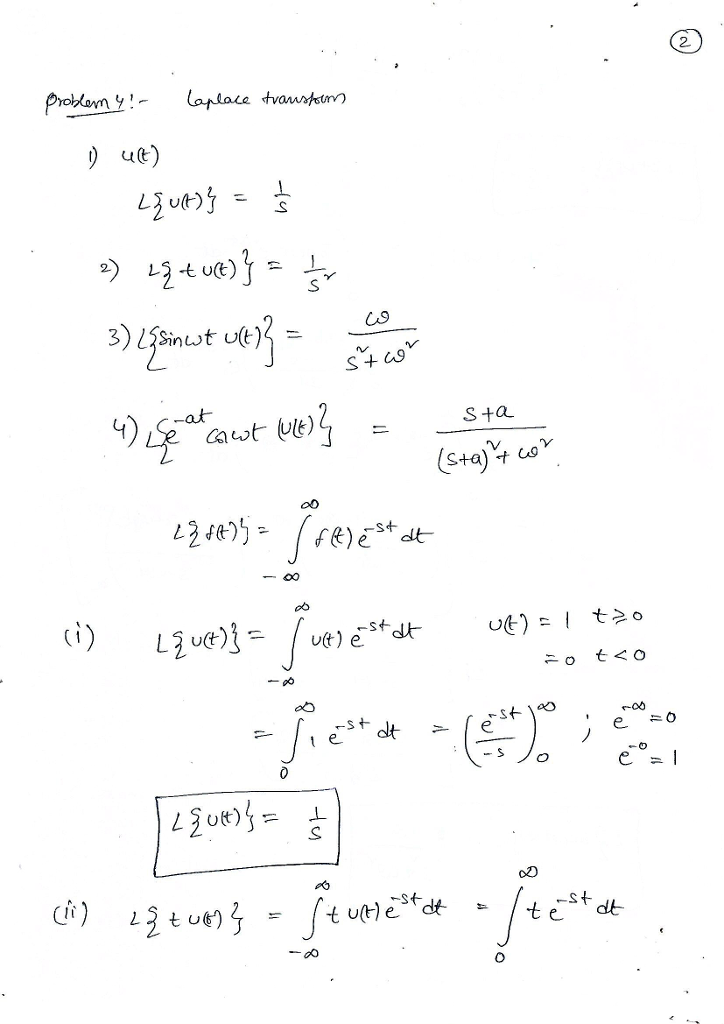 2
Problem 4:- Laplace transform
1) u(t)
L{u(t)} = 1/s
2) L{t u(t)} = 1/s²
3) L{sinωt u(t)} = ω/(s²+ω²)
4) L{e^-at cosωt (u(t)} = (s+a)/((s+a)²+ω²)
L{f(t)} = ∫_-∞^∞ f(t) e^-st dt
(i) L{u(t)} = ∫_-∞^∞ u(t) e^-st dt u(t) = 1 t≥0
= 0 t<0
= ∫_0^∞ 1 e^-st dt = (e^-st/-s)_0^∞ ; e^-∞ = 0
e^-0 = 1
L{u(t)} = 1/s
(ii) L{t u(t)} = ∫_-∞^∞ t u(t) e^-st dt = ∫_0^∞ t e^-st dt